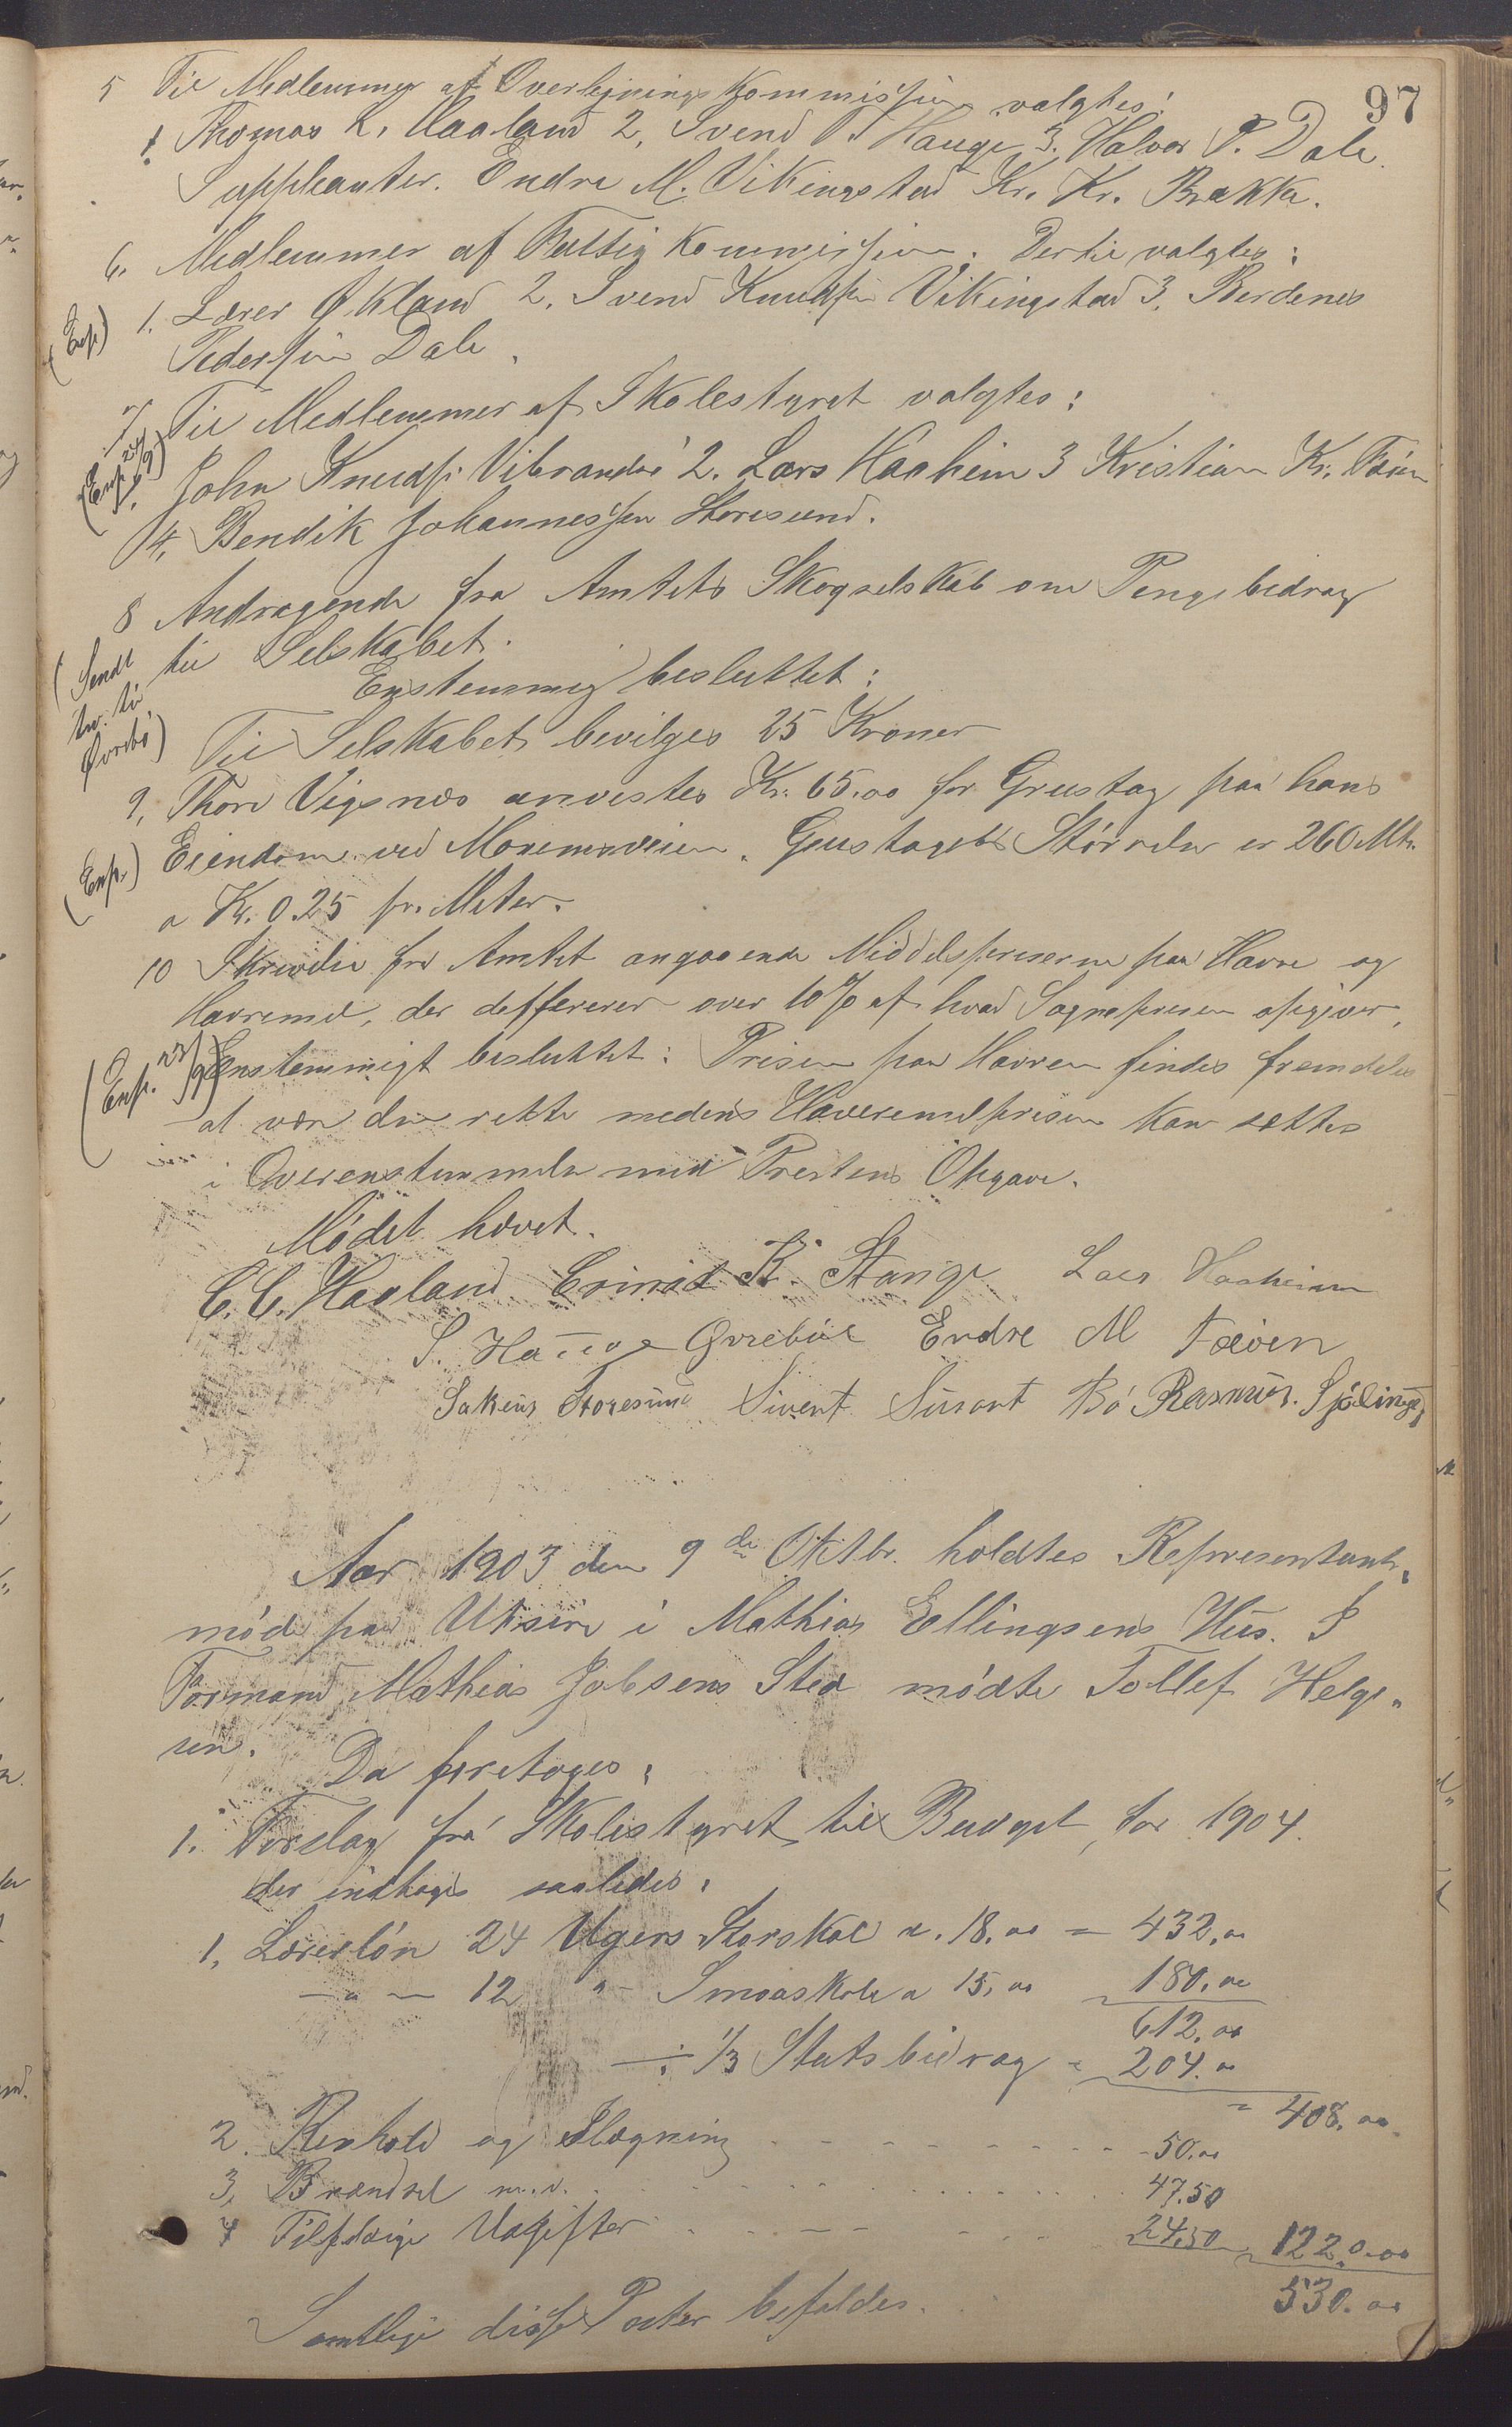 97
5 Til Medlemmer af Overligningskommissionen valgtes:
1. Thomas L. Haaland 2, Svend T Hauge 3. Halvor P. Dale.
Suppleanter. Endre M. Vikingstad Kr. Kr. Brekke.
6. Medlemmer af Fattigkommissionen. Dertil valgtes:
(Exp) 1. Lærer Økland 2. Svend Knudsen Vikingstad 3. Berdenes
Pedersen Dale.
7 Til Medlemmer af Skolestyret valgtes:
1. John Knudsen Vibrandsø 2. Lars Haaheim 3 Kristian Kr. Fæøen
4. Bendik Johannessen Storesund.
8 Andragende fra Amtets Skogselskab om Pengebidrag
(Sendt til Selskabet.
Enstemmig besluttet:
Til Selskabet bevilges 25 Kroner
9. Thore Vigsnæs anvistes Kr. 65.00 for Grustag paa hans
(Exp.) Eiendom ved Monemsveien. Grustagets Størrelse er 260 Mtr.
a Kr. 0.25 pr. Meter.
10 Skrivelse fra Amtet angaaende Middelspriserne paa Havre og
Havremel, der defferерer over 10% af hvad Sognepresten opgiver.
(Exp. 23/9) Enstemmigt besluttet: Prisen paa Havren findes fremdeles
at være den rette medens Havremelprisen kan settes
i Overenstemmelse med Prestens Opgave.
Mødet hævet.
C. C. Haaland Erinid K. Stange Lars Haaheim
S. Hauge Øvrebø Endre M Fæøen
Sakeus Storesund Sivert Bø Rasmus Sjølingst
Aar 1903 den 9de Oktbr. holdtes Representant-
møde paa Utsire i Mathias Ellingsens Hus. I
Formand Mathias Jobsens Sted mødte Tollef Helge-
sen. Da foretoges:
1. Forslag fra Skolestyret til Budget for 1904.
der indtoges saaledes:
1, Lærerløn 24 Ugers Storskole a. 18.00 = 432.00
— " — 12 " Smaaskole a 15.00 180.00
612.00
÷ 1/3 Statsbidrag = 204.00
= 408.00
2. Renhold og Ilægning - - - 50.00
3, Brændsel m.v. . . . 47.50
4 Tilfældige Udgifter . . . 24.50 122.0.00
530.00
Samtlige disse Poster befaldes.